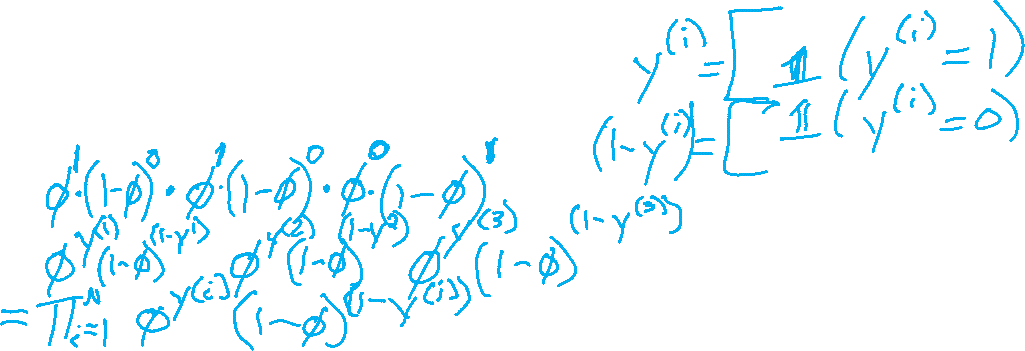 y^(i) = [ 𝟙 (y^(i) = 1)
(1 - y^(i)) = [ 𝟙 (y^(i) = 0)
ϕ^1 · (1-ϕ)^0 · ϕ^1 · (1-ϕ)^0 · ϕ^0 · (1-ϕ)^1
ϕ^y^(i) (1-ϕ)^(1-y^1) ϕ^y^(2) (1-ϕ)^(1-y^2) ϕ^y^(3) (1-ϕ)^(1-y^(3))
= ∏_{i=1}^N ϕ^y^(i) (1-ϕ)^(1-y^(i))